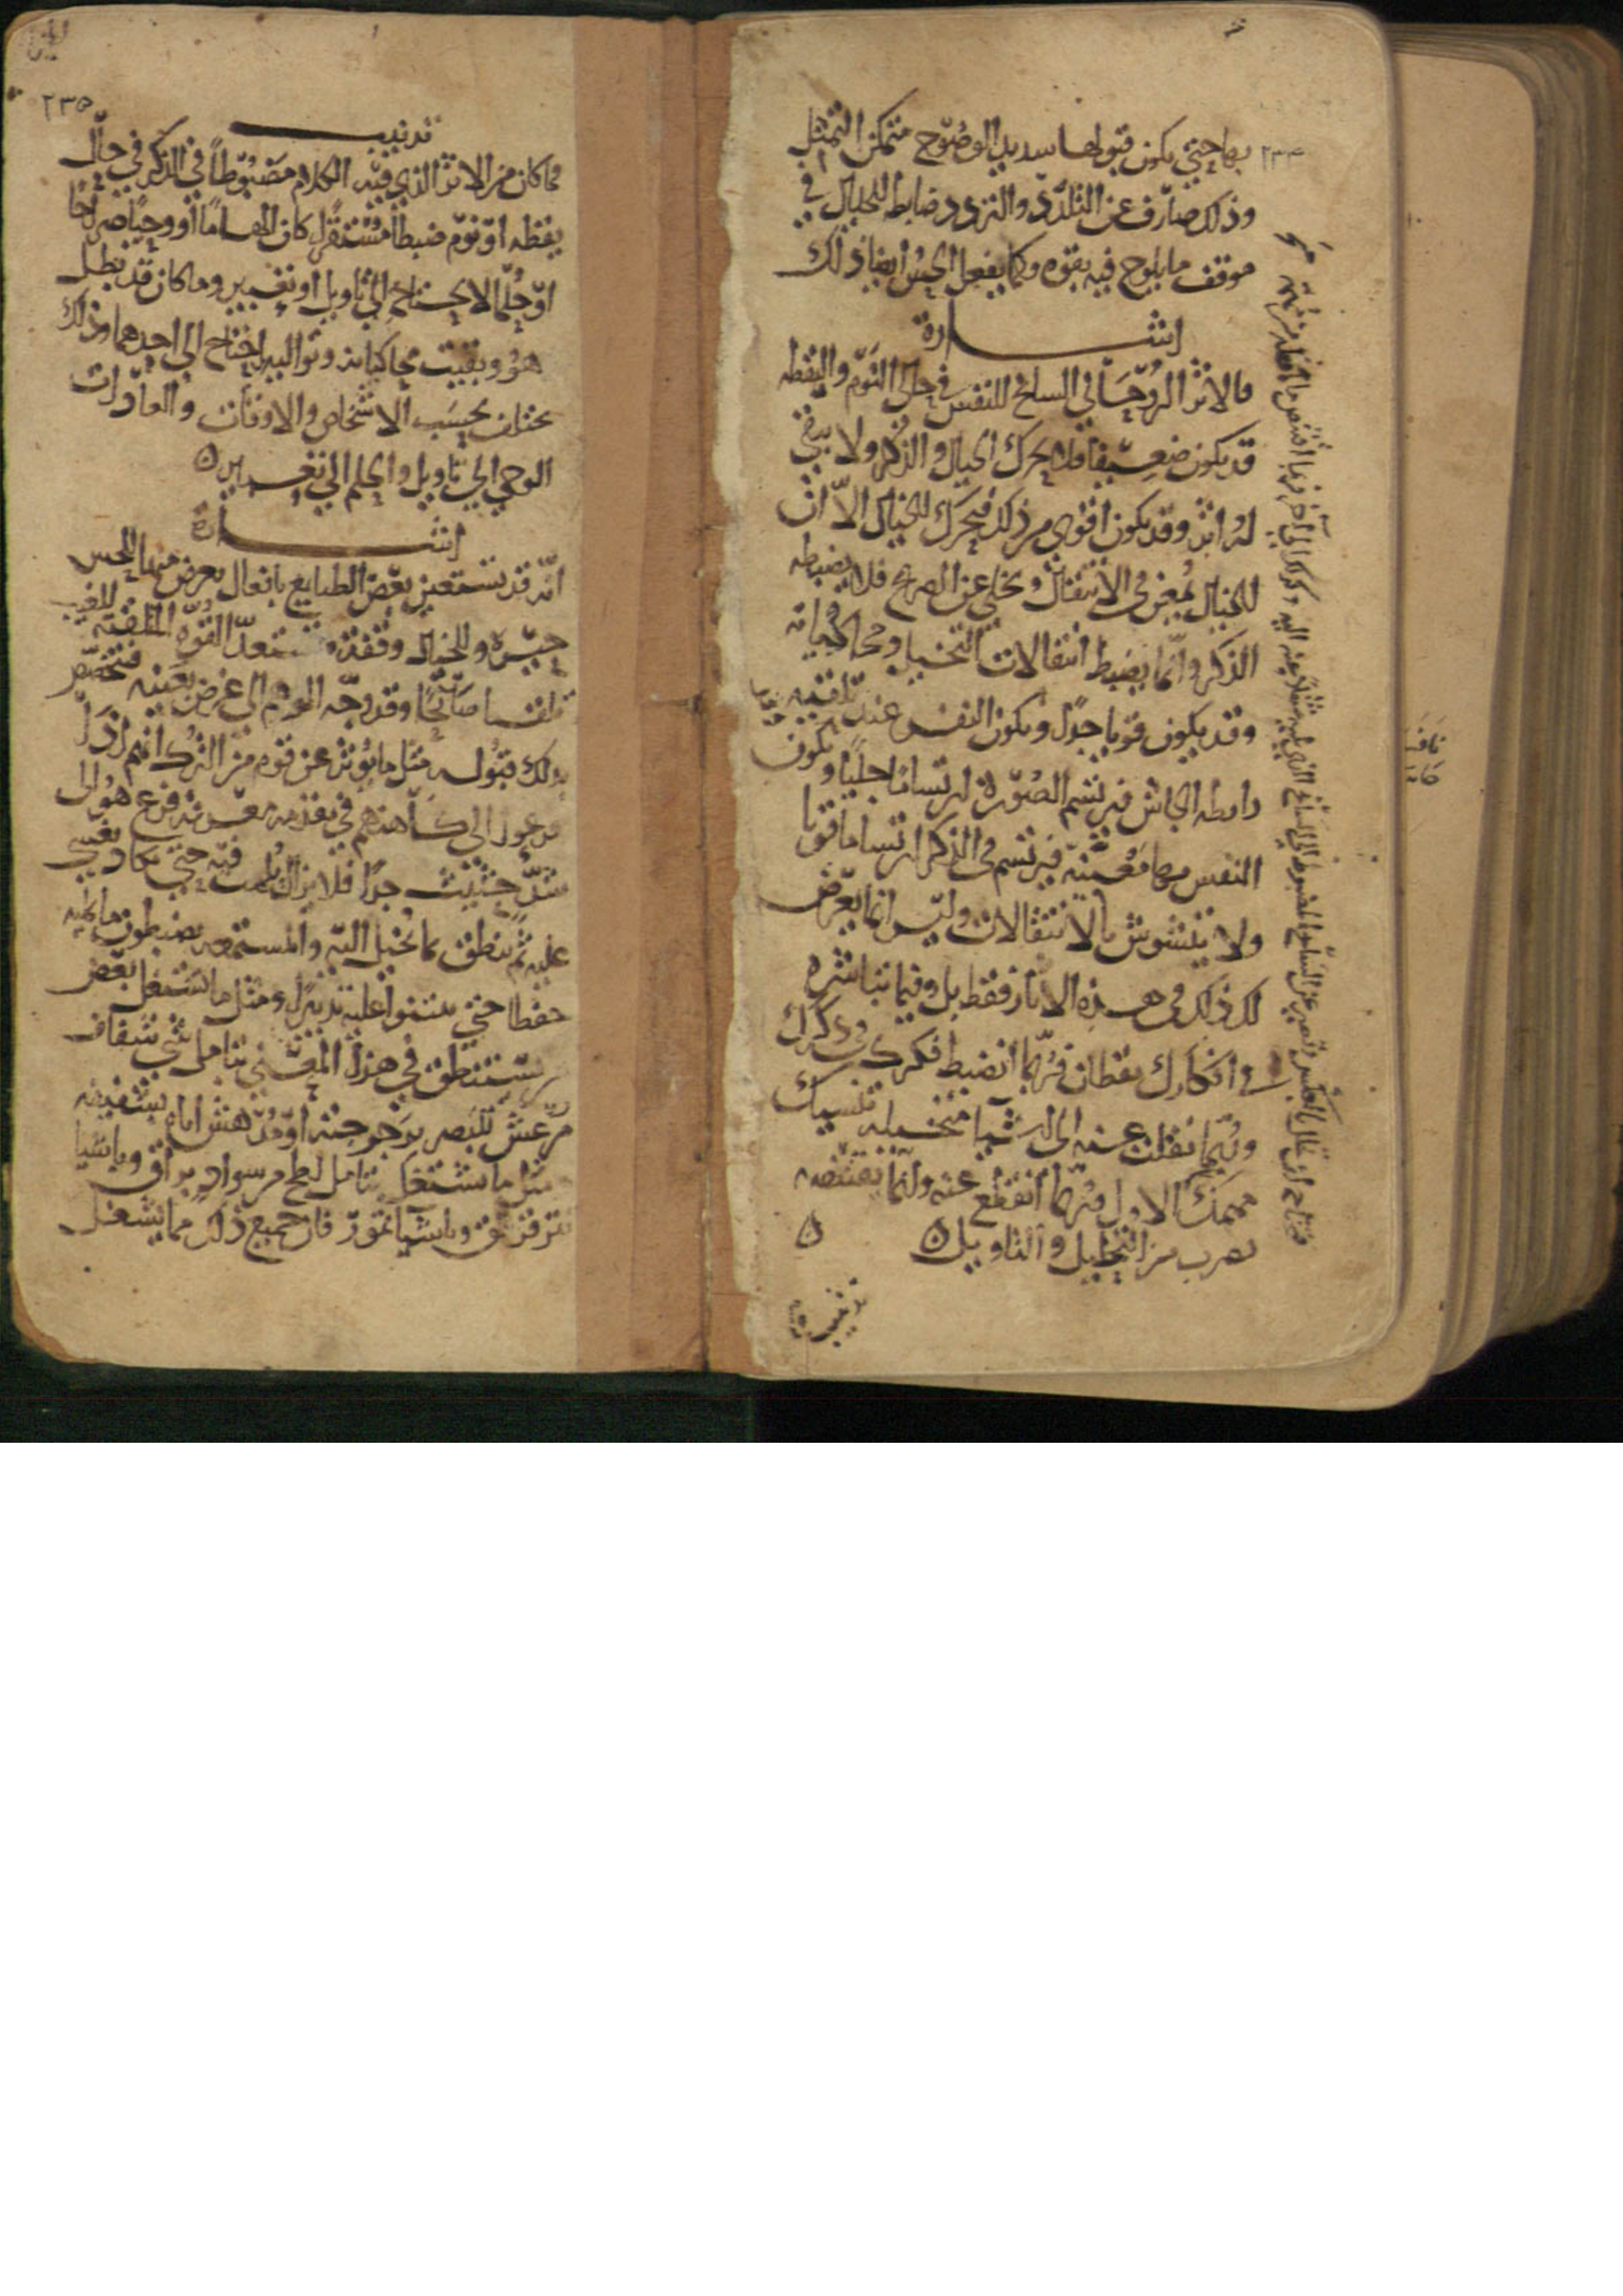 ٢٣٤
بها حتى يكون قبولها شديد الوضوح متمكن التمثل
وذلك صارف عن التلدد والتردد ضابط للخيال في
موقف ما يلوح فيه بقوة وكما يفعل الحس ايضا ذلك
اشارة
فالاثر الروحاني السانح للنفس في حالتي النوم واليقظه
قد يكون ضعيفا فلا يحرك الخيال والذكر ولا يبقى
له اثر وقد يكون اقوى من ذلك فيحرك الخيال الا ان
الخيال يمعن في الانتقال ويخلي عن الصريح فلا يضبطه
الذكر وانما يضبط انتقالات التخيل ومحاكياته
وقد يكون قويا جدا ويكون النفس عند تلقيه
رابطه الجاش فيرتسم الصورة ارتساما جليا ويكون
النفس بها معنية فيرتسم في الذكر ارتساما قويا
ولا يتشوش بالانتقالات وليس انما يعرض
لك ذلك في هذه الاثار فقط بل وفيما تباشره
في افكارك يقظان فربما انضبط فكرك في ذكرك
وربما نقلت عنه الى اشيا متخيله تنسيك
مهمك الاول فربما انقطع عنه وانما يقتنصه
بضرب من التحليل والتاويل ۝
تذنيب
٢٣٥
تذنيب
فما كان من الاثر الذي فيه الكلام مضبوطا في الذكر في حال
يقظه او نوم ضبطا مستقرا كان الهاما او وحيا صراحا
او حلما لا يحتاج الى تاويل او تعبير وما كان قد بطل
هو وبقيت محاكياته وتواليه احتاج الى احدهما وذلك
يختلف بحسب الاشخاص والاوقات والعادات
الوحي الى تاويل والحلم الى تعبير ۝
اشارة
انه قد تستعين بعض الطبايع بافعال يعرض منها للحس
حيرة وللخيال وقفة تستعد القوة المتلقية للغيب
تلقيا صالحا وقد وجه الوهم الى غرض بعينه فتخصص
بذلك قبوله مثل ما يؤثر عن قوم من الترك انهم اذا
فزعوا الى كاهنهم في تقدمة معرفة فزع هو الى
شد حثيث جدا فلا يزال يلهث فيه حتى يكاد يغشى
عليه ثم ينطق بما يخيل اليه والمستمعه يضبطون ما يلفظه
حفظا حتى يبنوا عليه تدبيرا ومثل ما يشغل بعض
من يستنطق في هذا المعنى بتامل شي شفاف
مرعش للبصر برجرجته او مدهش اياه بشفيفه
ومثل ما يشتغل بتامل لطخ من سواد براق وباشيا
تترقرق وباشيا تمور فان جميع ذلك مما يشغل